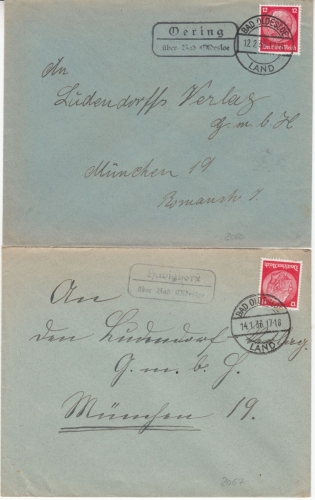 Oering
über Bad Oldesloe
BAD OLDESLOE
12.2.3
LAND
12
Deutsches Reich
An
Ludendorffs Verlag
G. m. b. H
München 19
Romanstr. 7.
über Bad Oldesloe
BAD OLDESLOE
14.1.36.17-18
LAND
Deutsches Reich
12
An
den Ludendorf
G. m. b. H.
München 19.